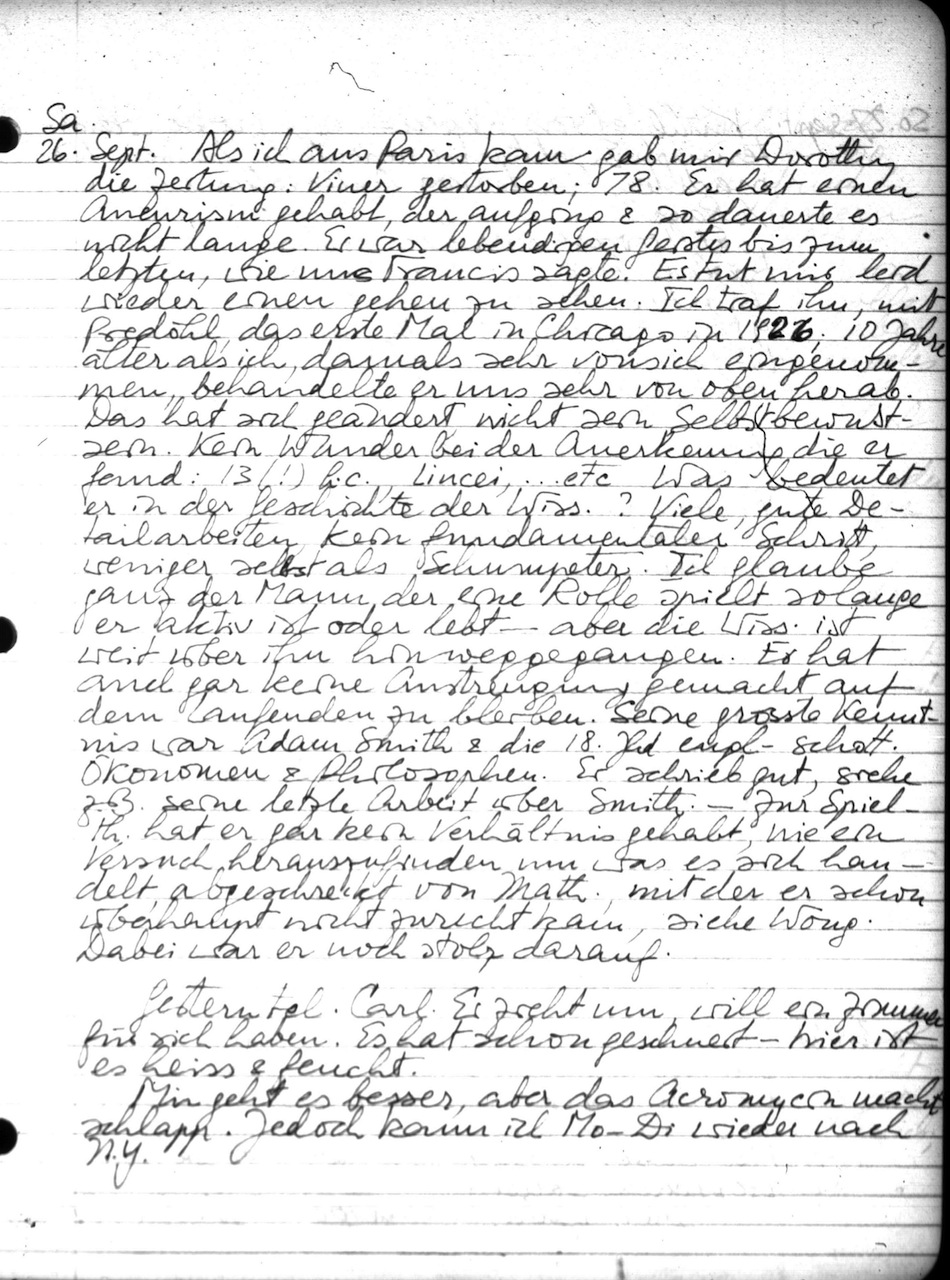 Sa.
26. Sept. Als ich aus Paris kam gab mir Dorothy
die Zeitung: Viner gestorben; 78. Er hat einen
Aneurism gehabt, der aufging & so dauerte es
nicht lange. Er war lebendigen Geistes bis zum
letzten, wie uns Francis sagte. Es tut mir leid
wieder einen gehen zu sehen. Ich traf ihn, mit
Predöhl, das erste Mal in Chicago in 1926; 10 Jahre
älter als ich, damals sehr von sich eingenom-
men, behandelte er uns sehr von oben herab.
Das hat sich geändert nicht sein Selbstbewusst-
sein. Kein Wunder bei der Anerkennung die er
fand: 13 (!) h.c., Lincei, ... etc Was bedeutet
er in der Geschichte der Wiss.? Viele, gute De-
tailarbeiten, kein fundamentaler Schritt,
weniger selbst als Schumpeter. Ich glaube
ganz der Mann, der eine Rolle spielt solange
er aktiv ist oder lebt — aber die Wiss. ist
weit über ihn hinweggegangen. Er hat
auch gar keine Anstrengung gemacht auf
dem Laufenden zu bleiben. Seine grosste Kennt-
nis war Adam Smith & die 18. Jhd engl-schott.
Ökonomen & Philosophen. Er schrieb gut, siehe
z.B. seine letzte Arbeit über Smith. — Zur Spiel-
th. hat er gar kein Verhältnis gehabt, nie ein
Versuch herauszufinden um was es sich han-
delt, abgeschreckt von Math., mit der er schon
überhaupt nicht zurecht kam, siehe Wong.
Dabei war er noch stolz darauf.
Gestern tel. Carl. Er zieht um, will ein Zimmer
für sich haben. Es hat schon geschneit — hier ist
es heiss & feucht.
Mir geht es besser, aber das Acromycin macht
schlapp. Jedoch kann ich Mo-Di wieder nach
N.Y.